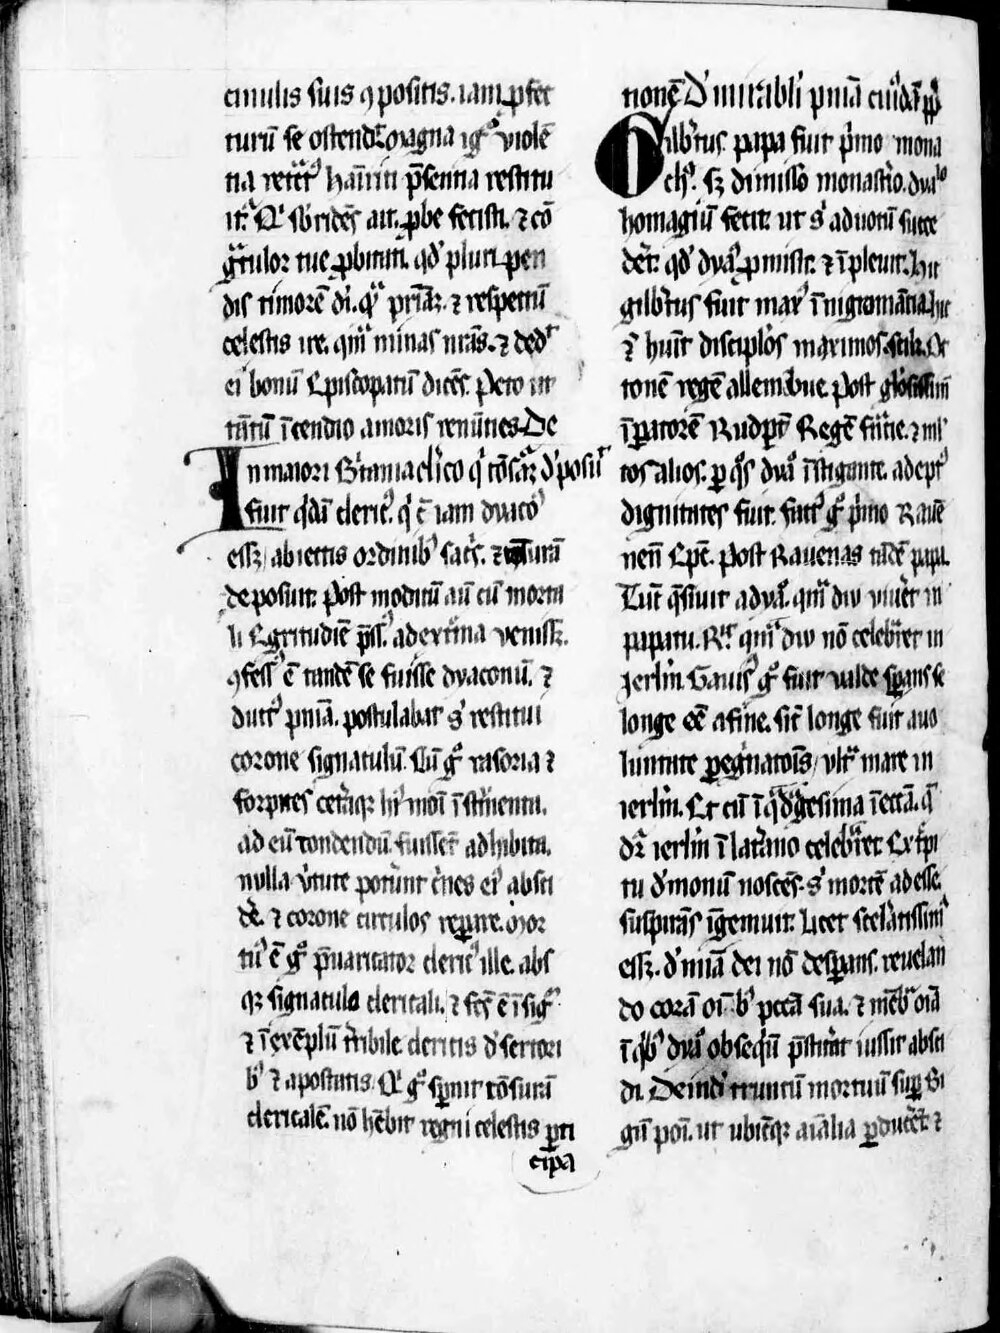 cinulis suis ꝯpositis. iam ꝑfec
turū se ostend̄. Magna igͦ violē
tia retētꝰ hanriti p̄sentia restitu
it̄. Qͥ sb̓ridēs ait. ꝓbe fecisti. ⁊ cō
gͣtulor tue ꝓbitati. qd̓ pluri ꝑpen
dis timorē di. qͣ pc̄iaꝝ. ⁊ respectū
celestis ire. qͣm minas nr̄as. ⁊ ded̓
ei bonū Episcopatū dicēs. Peto ut
tm̄ī incendio amoris renūties. De
In maiori Bͥtania cl̓ico qͥ tōsurā d̓posuͥ
fuit qͥdā cleric̓. qͥ cū iam dyaco
eſſꝫ abiectis ordinib̓ sac̓s. ⁊ tōsurā
deposuit. Post modicū aū cū morta
li Egritudiē p̄ss̓. ad extͥma venissꝫ.
ꝯfess̓ ē tandē se fuisse dyaconū. ⁊
duct̓ pnīa. postulabat s̓ restitui
corone signatulū. Cū gͦ rasoria ⁊
forpices cet̓aqꝫ hꝰ moī īst̓menta.
ad eū tondendū fuissēt adhibita.
nulla v̓tute pot̓unt c̓nes ei̓ absci
dē. ⁊ corone circulos reparare. Mor
tuꝰ ē gͦ p̄uaricator cleric̓ ille. abs
qꝫ signatulo clericali. ⁊ fcs̄ ē ī sigͫ
⁊ ī exēplū t̓ribile clericis d̓sertori
b̓ ⁊ apostatis. Qͥ gͦ spernit tōsurā
clericalē. nō hēbit regni celestis ꝑti
cipa
tionē. D̓ mirabili pnīa cuiͥdā pp̄
Gilb̓tus papa fuit pͥmo mona
chꝰ. sꝫ dimisso monast̓io. dyaͦlo
homagiū fecit. ut s̓ ad uotū succe
d̓et. qd̓ dyaͦ ꝓmisit. ⁊ īpleuit. Hic
gilb̓tus fuit maxꝰ ī nigromācia. hic
⁊ huit discip̓los maximos. scilꝫ. Oc
tonē regē allemānie. Post glōsissimū
īꝑatorē Rudꝑtū Regē frācie. ⁊ ml̓
tos alios. ꝑ qͦs dyaͦ īstigante. adept̓
dignitates fuit. fact̓ gͦ pͥmo Raue
nen̄ Epc̄. Post Rauenas tādē papa.
Tūc q̄siuit a dyaͦ. qͣm diu viuet in
papatu. R̄t quā diu nō celebͣret in
ierl̄m. Gauisꝰ gͦ fuit valde sperans se
longe eē a fine. sic̄ longe fuit a uo
luntate ꝑegͥnatōis ultͣ mare in
ierl̄m. Et cū ī qͣdͣgesima ī eccā. q̄
dr̄ ierl̄m ī lat̓ano celebͣret. Ex strepi
tu d̓monū noscēs. s̓ mortē adesse.
suspirās īgemuit. Licet scel̓atissimꝰ
eſſꝫ. d̓ mīa dei nō desperans. reuelan
do corā oīb̓ pcc̄a sua. ⁊ mēbͣ oīa
ī qͥb̓ dyaͦ obseqͥū p̄stit̓at iussit absci
di. Deind̓ truncū mortuū suꝑ bi
gā poni. ut ubicūqꝫ aīalia ꝑducēt ⁊